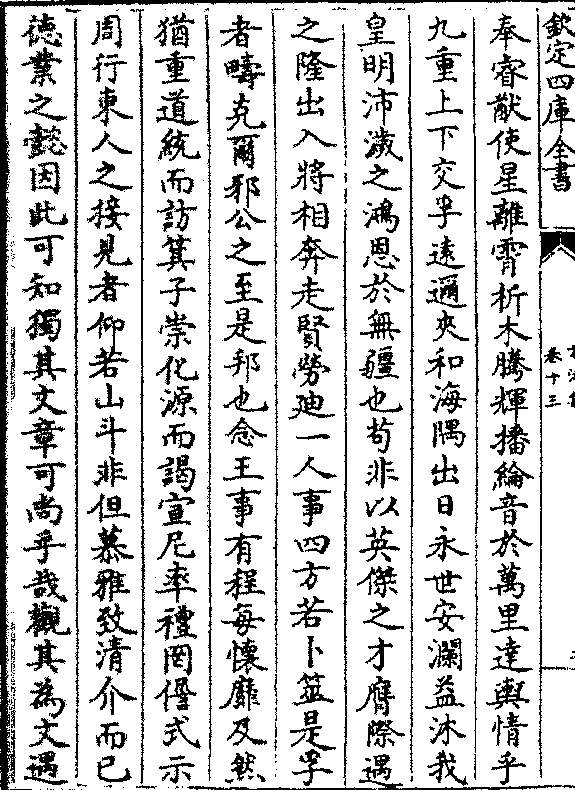 欽定四庫全書
卷十三
奉睿猷使星離霄析木騰輝播綸音於萬里達輿情乎
九重上下交孚遠邇夾和海隅出日永世安瀾益沐我
皇明沛濊之鴻恩於無疆也苟非以英傑之才膺際遇
之隆出入將相奔走賢勞廸一人事四方若卜筮是孚
者疇克爾邪公之至是邦也念王事有程每懷靡及然
猶重道統而訪箕子崇化源而謁宣尼率禮罔僭式示
周行東人之接見者仰若山斗非但慕雅致清介而已
徳業之懿因此可知獨其文章可尚乎哉觀其為文遇